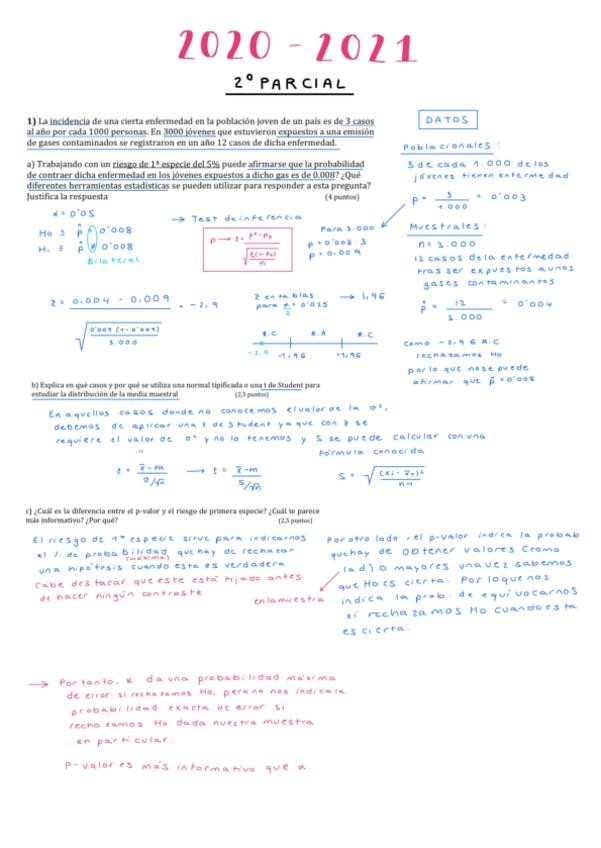 2020 - 2021
2º PARCIAL
1) La incidencia de una cierta enfermedad en la población joven de un país es de 3 casos
al año por cada 1000 personas. En 3000 jóvenes que estuvieron expuestos a una emisión
de gases contaminados se registraron en un año 12 casos de dicha enfermedad.
a) Trabajando con un riesgo de 1ª especie del 5% puede afirmarse que la probabilidad
de contraer dicha enfermedad en los jóvenes expuestos a dicho gas es de 0.008? ¿Qué
diferentes herramientas estadísticas se pueden utilizar para responder a esta pregunta?
Justifica la respuesta (4 puntos)
α = 0'05
Ho ≡ p̂ = 0'008
H₁ ≡ p̂ ≠ 0'008
Bilateral
→ Test de inferencia
p → z = p* - p₀ / √(p₀(1-p₀)/n)
Para 3.000
p = 0'003 · 3
p = 0.009
z = 0.004 - 0.009 / √(0'009 (1-0'009)/3.000) = - 2.9
z en tablas → 1,96
para α/2 = 0'025
R.C R.A R.C
-2.9 -1,96 +1,96
DATOS
Poblacionales:
3 de cada 1.000 de los
jóvenes tienen enfermedad
p = 3/1.000 = 0'003
Muestrales:
n = 3.000
12 casos de la enfermedad
tras ser expuestos a unos
gases contaminantes
p̂ = 12/3.000 = 0'004
Como -2.9 ∈ R.C
rechazamos Ho
por lo que no se puede
afirmar que p̂ = 0'008
b) Explica en qué casos y por qué se utiliza una normal tipificada o una t de Student para
estudiar la distribución de la media muestral (2,5 puntos)
En aquellos casos donde no conocemos el valor de la σ²,
debemos de aplicar una t de Student ya que con z se
requiere el valor de σ² y no lo tenemos y S se puede calcular con una
fórmula conocida
z = x̄-m / σ/√n → t = x̄-m / S/√n
S = √((xi - x̄)²/n-1)
c) ¿Cuál es la diferencia entre el p-valor y el riesgo de primera especie? ¿Cuál te parece
más informativo? ¿Por qué? (2.5 puntos)
El riesgo de 1ª especie sirve para indicarnos
el % de probabilidad (máxima) que hay de rechazar
una hipótesis cuando esta es verdadera
Cabe destacar que este está fijado antes
de hacer ningún contraste
Por otro lado, el p-valor indica la probab
que hay de obtener valores (como
la d) o mayores una vez sabemos
que Ho es cierta. Por lo que nos
indica la prob. de equivocarnos
si rechazamos Ho cuando esta
es cierta.
en la muestra
→ Por tanto, α da una probabilidad máxima
de error si rechazamos Ho, pero no nos indica la
probabilidad exacta de error si
rechazamos Ho dada nuestra muestra
en particular.
P-valor es más informativo que α.